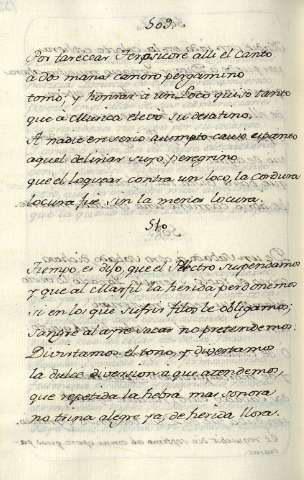 569.
Por tarecear Terpsicore alli el Canto
a dos manos candro pergamino
tomó; y honrar à un Loco quiso tanto
que à Murcia elevó su desatino,
A nadie en serio asumpto causo espanto
aquel delirar suyo, peregrino,
que el lograr contra un loco, la Cordura
locura fue sin la menor locura.
570.
Tiempo es dijo, que el Plectro suspendamos
y que al Marfil la herida perdonemos
si en los que sufrir filos, le obligamos;
Sangre al ayre sacar no pretendemos.
Diviertamos el tono, y divertamos
la dulce diversion à que atendemos,
que repetida la hebra mas sonora
no trina alegre ya, de herida llora.